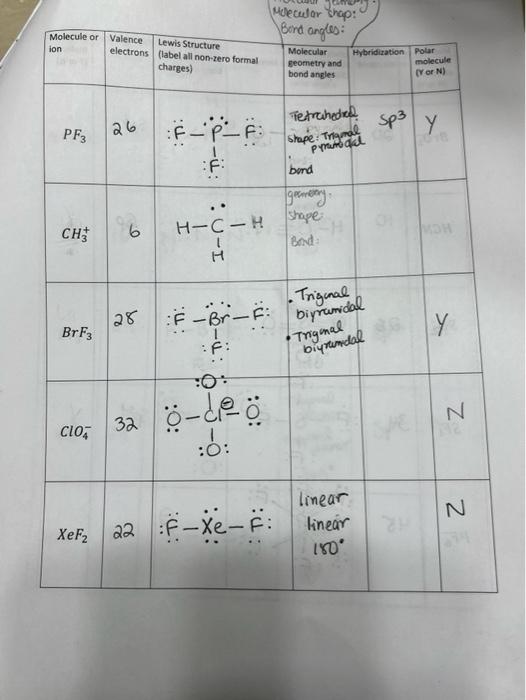 Molecular shap:
Bond angles:
Molecule or ion
Valence electrons
Lewis Structure (label all non-zero formal charges)
Molecular geometry and bond angles
Hybridization
Polar molecule (Y or N)
PF₃
26
:F̈–P̈–F̈:
:F̈:
Tetrahedral
shape: Trigonal
pyramidal
bond
sp3
Y
CH₃⁺
6
H–C̈–H
H
geometry.
shape:
Bond:
BrF₃
28
:F̈–Br–F̈:
:F:
• Trigonal
bipyramidal
• Trigonal
bipyramidal
Y
ClO₄⁻
32
:O:
Ö–Cl⊖–Ö
:O:
N
XeF₂
22
:F̈–Xe–F̈:
linear
linear
180°
N